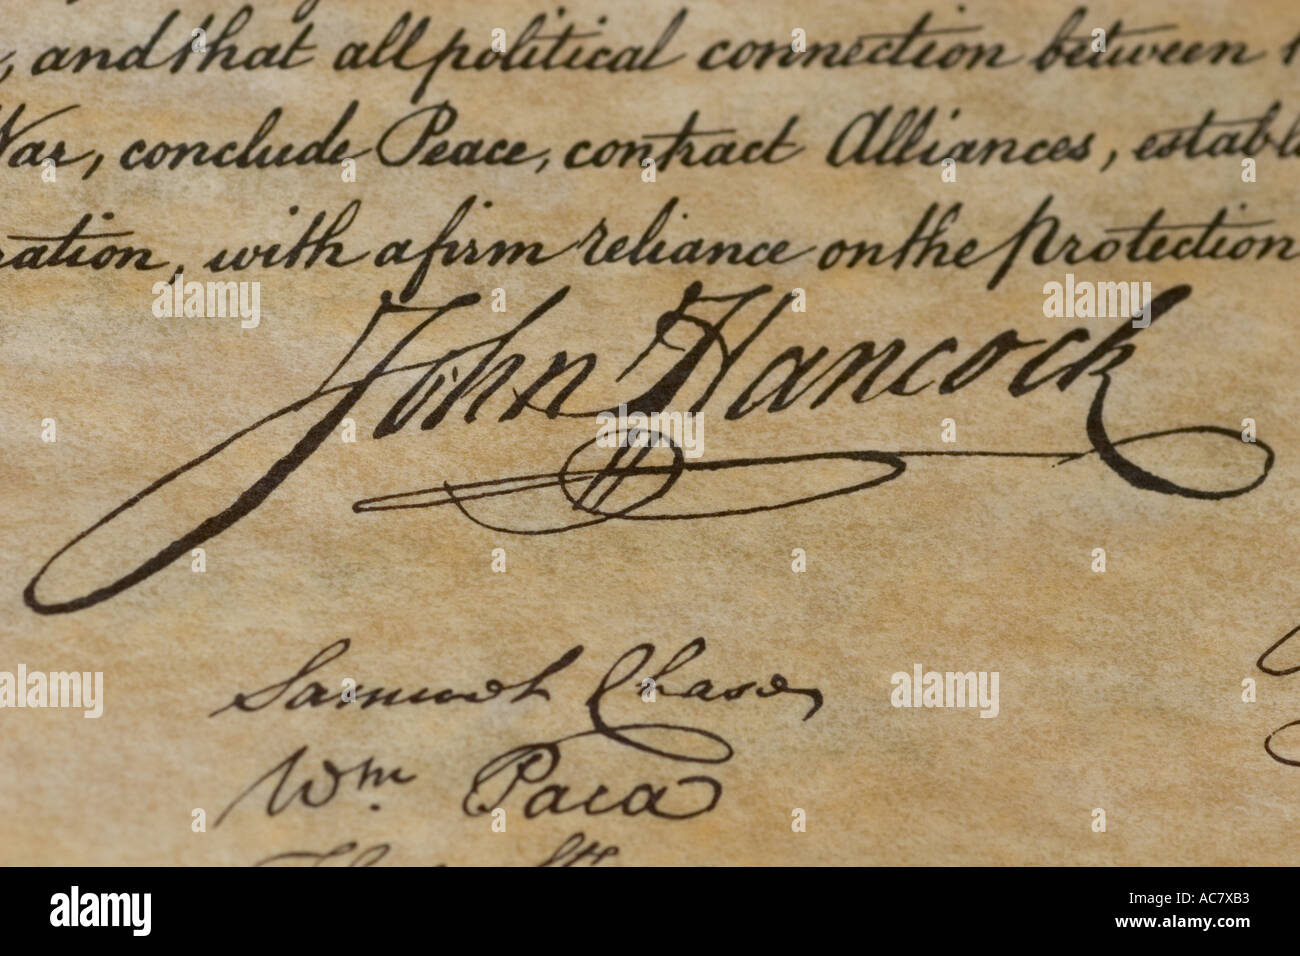 , and that all political connection between
War, conclude Peace, contract Alliances, establ
ration, with a firm reliance on the Protection
John Hancock
Samuel Chase
Wm Paca
alamy
a
alamy
Image ID: AC7XB3
www.alamy.com